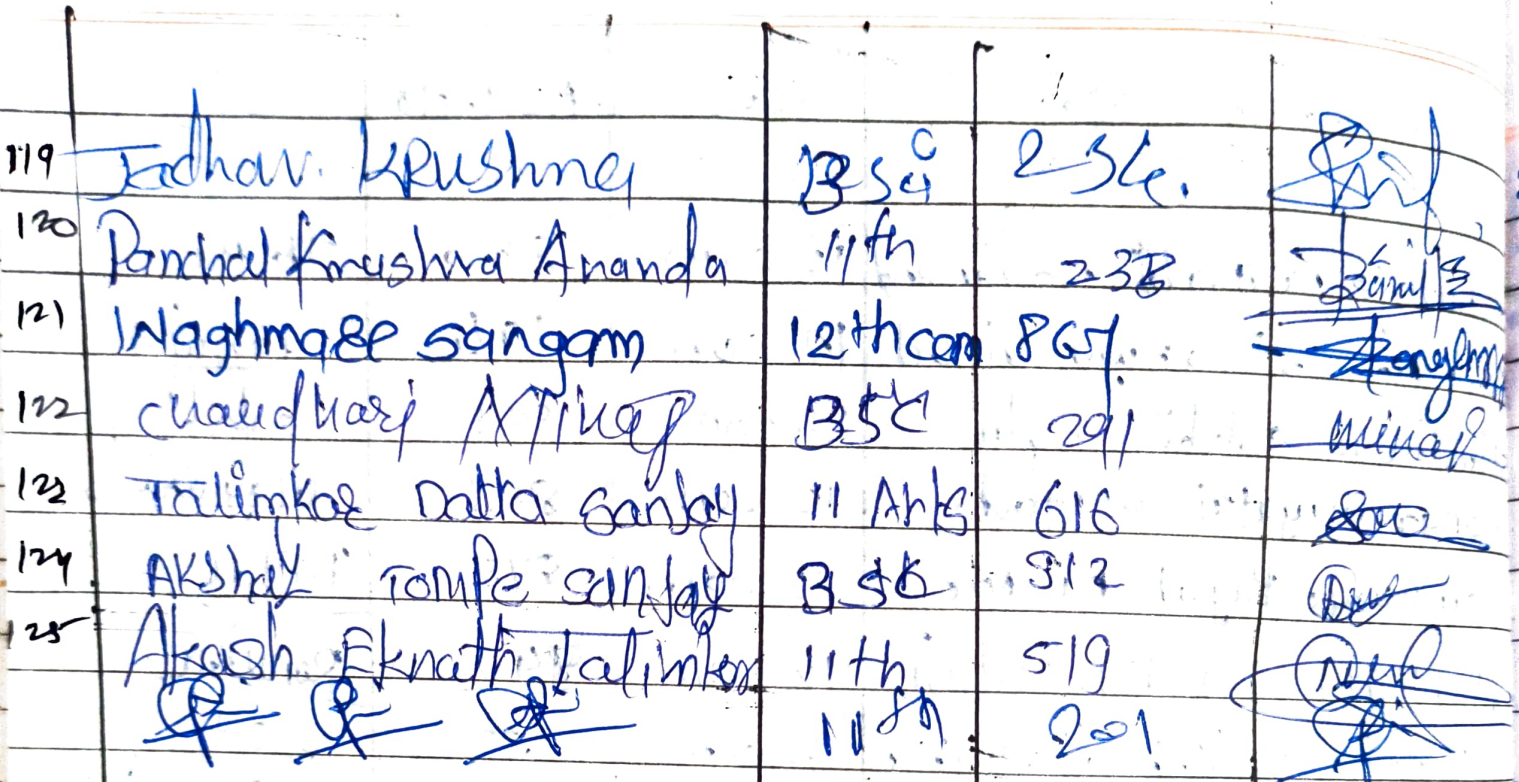 119 Jadhav. Krushna BSc 234.
120 Panchal Krushna Ananda 11th 238
121 Waghmare Sangam 12th com 867
122 Chaudhari BSC 291
123 Talimkar Datta Sanjay 11 Arts 616
124 Akshay Tompe Sanjay BSC 912
125 Akash Eknath Talimkar 11th 519
11th 201